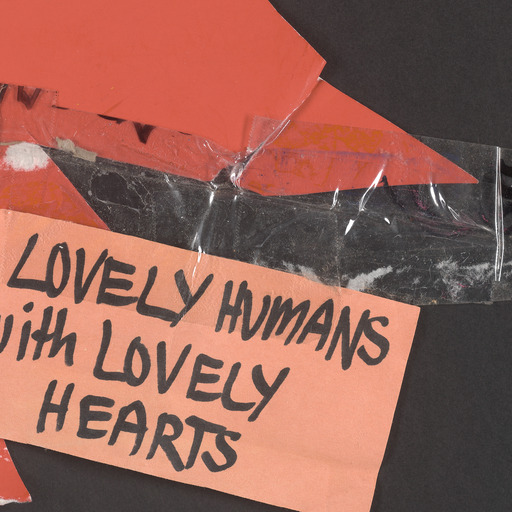 LOVELY HUMANS
with LOVELY
HEARTS